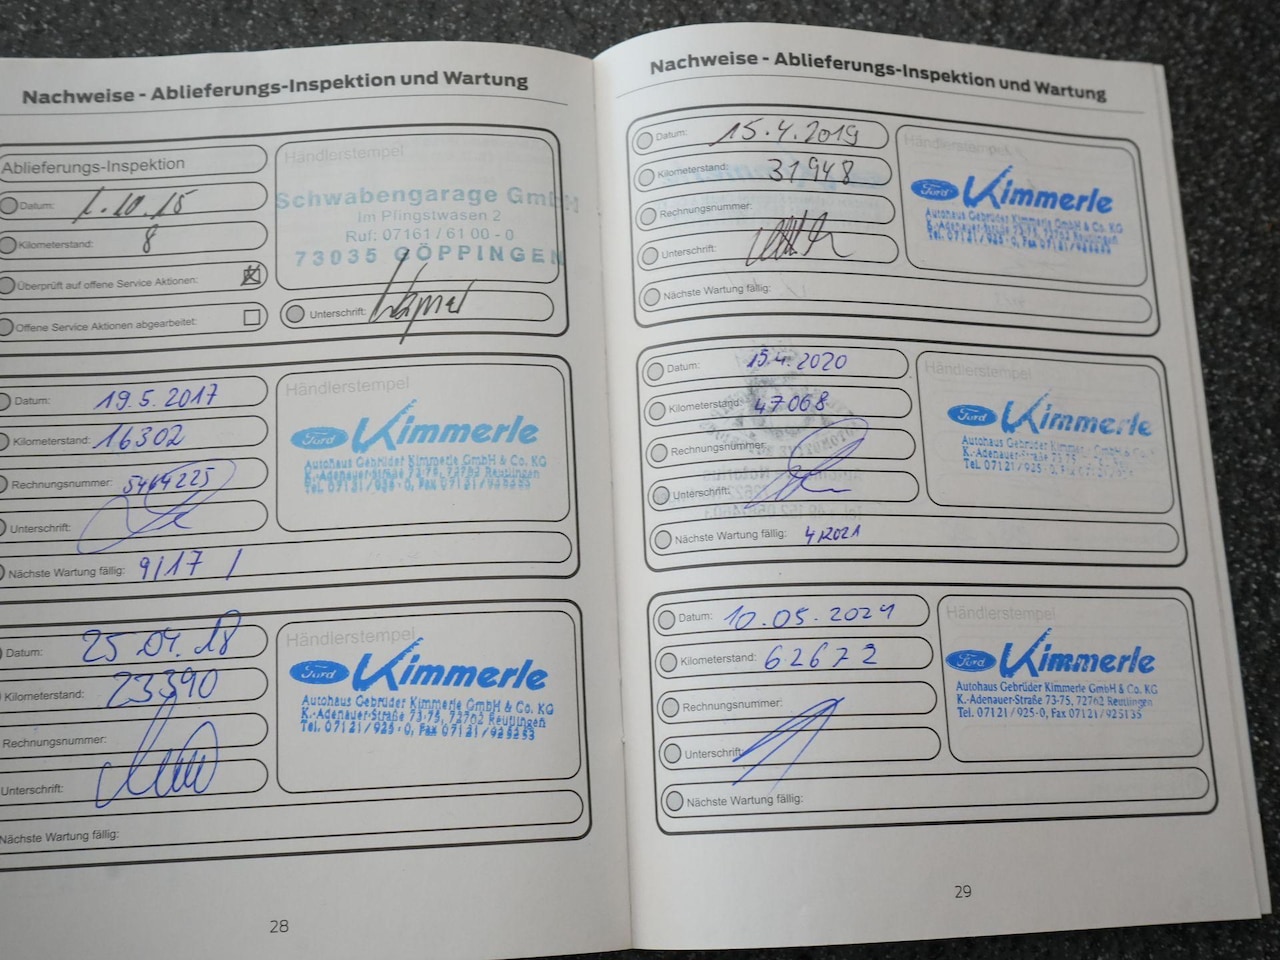 Nachweise - Ablieferungs-Inspektion und Wartung
Ablieferungs-Inspektion
Datum: 1.10.15
Kilometerstand: 8
Überprüft auf offene Service Aktionen:
Offene Service Aktionen abgearbeitet:
Händlerstempel
Schwabengarage GmbH
Im Pfingstwasen 2
Ruf: 07161/6100-0
73035 GÖPPINGEN
Unterschrift:
Datum: 19.5.2017
Kilometerstand: 16302
Rechnungsnummer: 5464225
Unterschrift:
Nächste Wartung fällig: 9/17 /
Händlerstempel
Ford Kimmerle
Autohaus Gebrüder Kimmerle GmbH & Co. KG
K.-Adenauer-Straße 73-75, 72762 Reutlingen
Tel. 07121/925-0, Fax 07121/925235
Datum: 25.04.18
Kilometerstand: 23390
Rechnungsnummer:
Unterschrift:
Nächste Wartung fällig:
Händlerstempel
Ford Kimmerle
Autohaus Gebrüder Kimmerle GmbH & Co. KG
K.-Adenauer-Straße 73-75, 72762 Reutlingen
Tel. 07121/925-0, Fax 07121/925235
28
Nachweise - Ablieferungs-Inspektion und Wartung
Datum: 15.4.2019
Kilometerstand: 31948
Rechnungsnummer:
Unterschrift:
Nächste Wartung fällig:
Händlerstempel
Ford Kimmerle
Autohaus Gebrüder Kimmerle GmbH & Co. KG
K.-Adenauer-Straße 73-75, 72762 Reutlingen
Tel. 07121/925-0, Fax 07121/925235
Datum: 15.4.2020
Kilometerstand: 47068
Rechnungsnummer:
Unterschrift:
Nächste Wartung fällig: 4/2021
Händlerstempel
Ford Kimmerle
Autohaus Gebrüder Kimmerle
K.-Adenauer-Straße 73-75,
Tel. 07121/925-0,
Datum: 10.05.2021
Kilometerstand: 62672
Rechnungsnummer:
Unterschrift:
Nächste Wartung fällig:
Händlerstempel
Ford Kimmerle
Autohaus Gebrüder Kimmerle GmbH & Co. KG
K.-Adenauer-Straße 73-75, 72762 Reutlingen
Tel. 07121/925-0, Fax 07121/925135
29